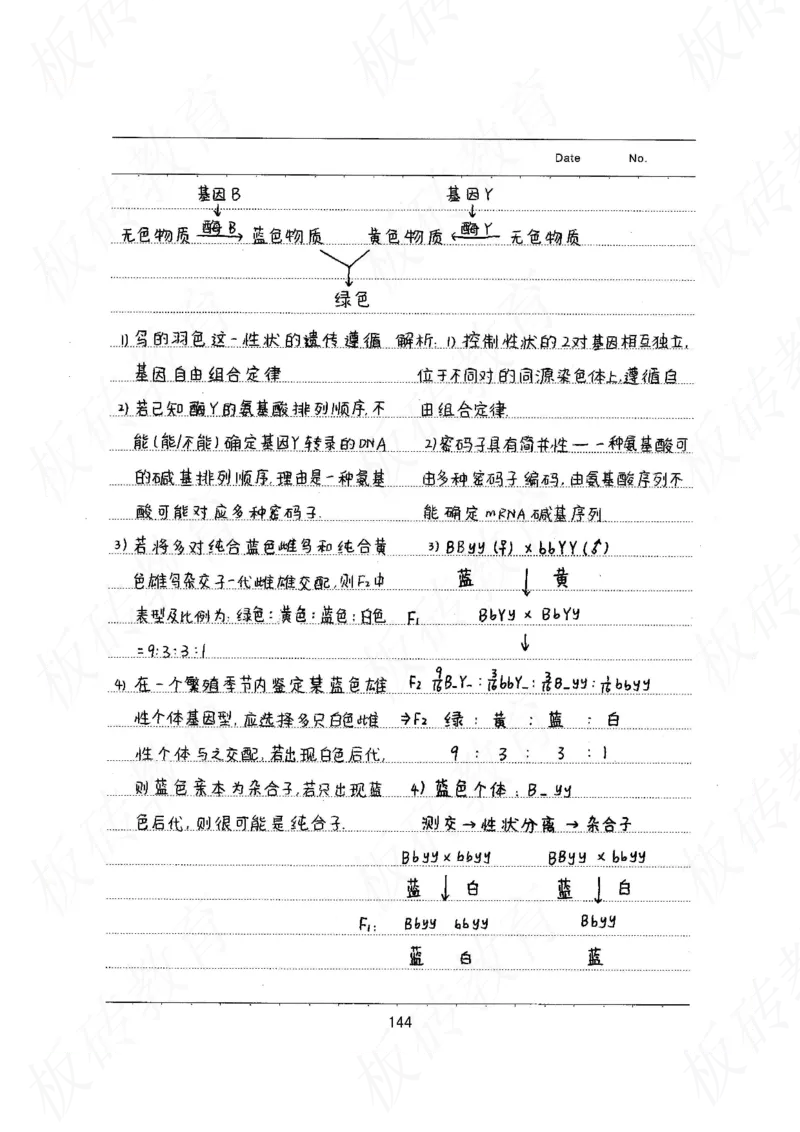 Date No.
基因B 基因Y
无色物质 酶B 蓝色物质 黄色物质 酶Y 无色物质
绿色
1) 鸟的羽色这一性状的遗传遵循
基因自由组合定律
2) 若已知酶Y的氨基酸排列顺序,不
能(能/不能)确定基因Y转录的DNA
的碱基排列顺序.理由是一种氨基
酸可能对应多种密码子.
3) 若将多对纯合蓝色雌鸟和纯合黄
色雄鸟杂交子一代雌雄交配,则F₂中
表型及比例为:绿色:黄色:蓝色:白色
=9:3:3:1
4) 在一个繁殖季节内鉴定某蓝色雄
性个体基因型,应选择多只白色雌
性个体与之交配,若出现白色后代,
则蓝色亲本为杂合子,若只出现蓝
色后代,则很可能是纯合子.
解析: 1) 控制性状的2对基因相互独立,
位于不同对的同源染色体上,遵循自
由组合定律.
2) 密码子具有简并性 — 一种氨基酸可
由多种密码子编码,由氨基酸序列不
能确定mRNA碱基序列
3) BByy (♀) × bbYY (♂)
蓝 ↓ 黄
F₁ BbYy × BbYy
↓
F₂ 9/16 B_Y_ : 3/16 bbY_ : 3/16 B_yy : 1/16 bbyy
⇒F₂ 绿 : 黄 : 蓝 : 白
9 : 3 : 3 : 1
4) 蓝色个体: B_yy
测交 → 性状分离 → 杂合子
Bbyy × bbyy BByy × bbyy
蓝 ↓ 白 蓝 ↓ 白
F₁: Bbyy bbyy Bbyy
蓝 白 蓝
144
板砖教育